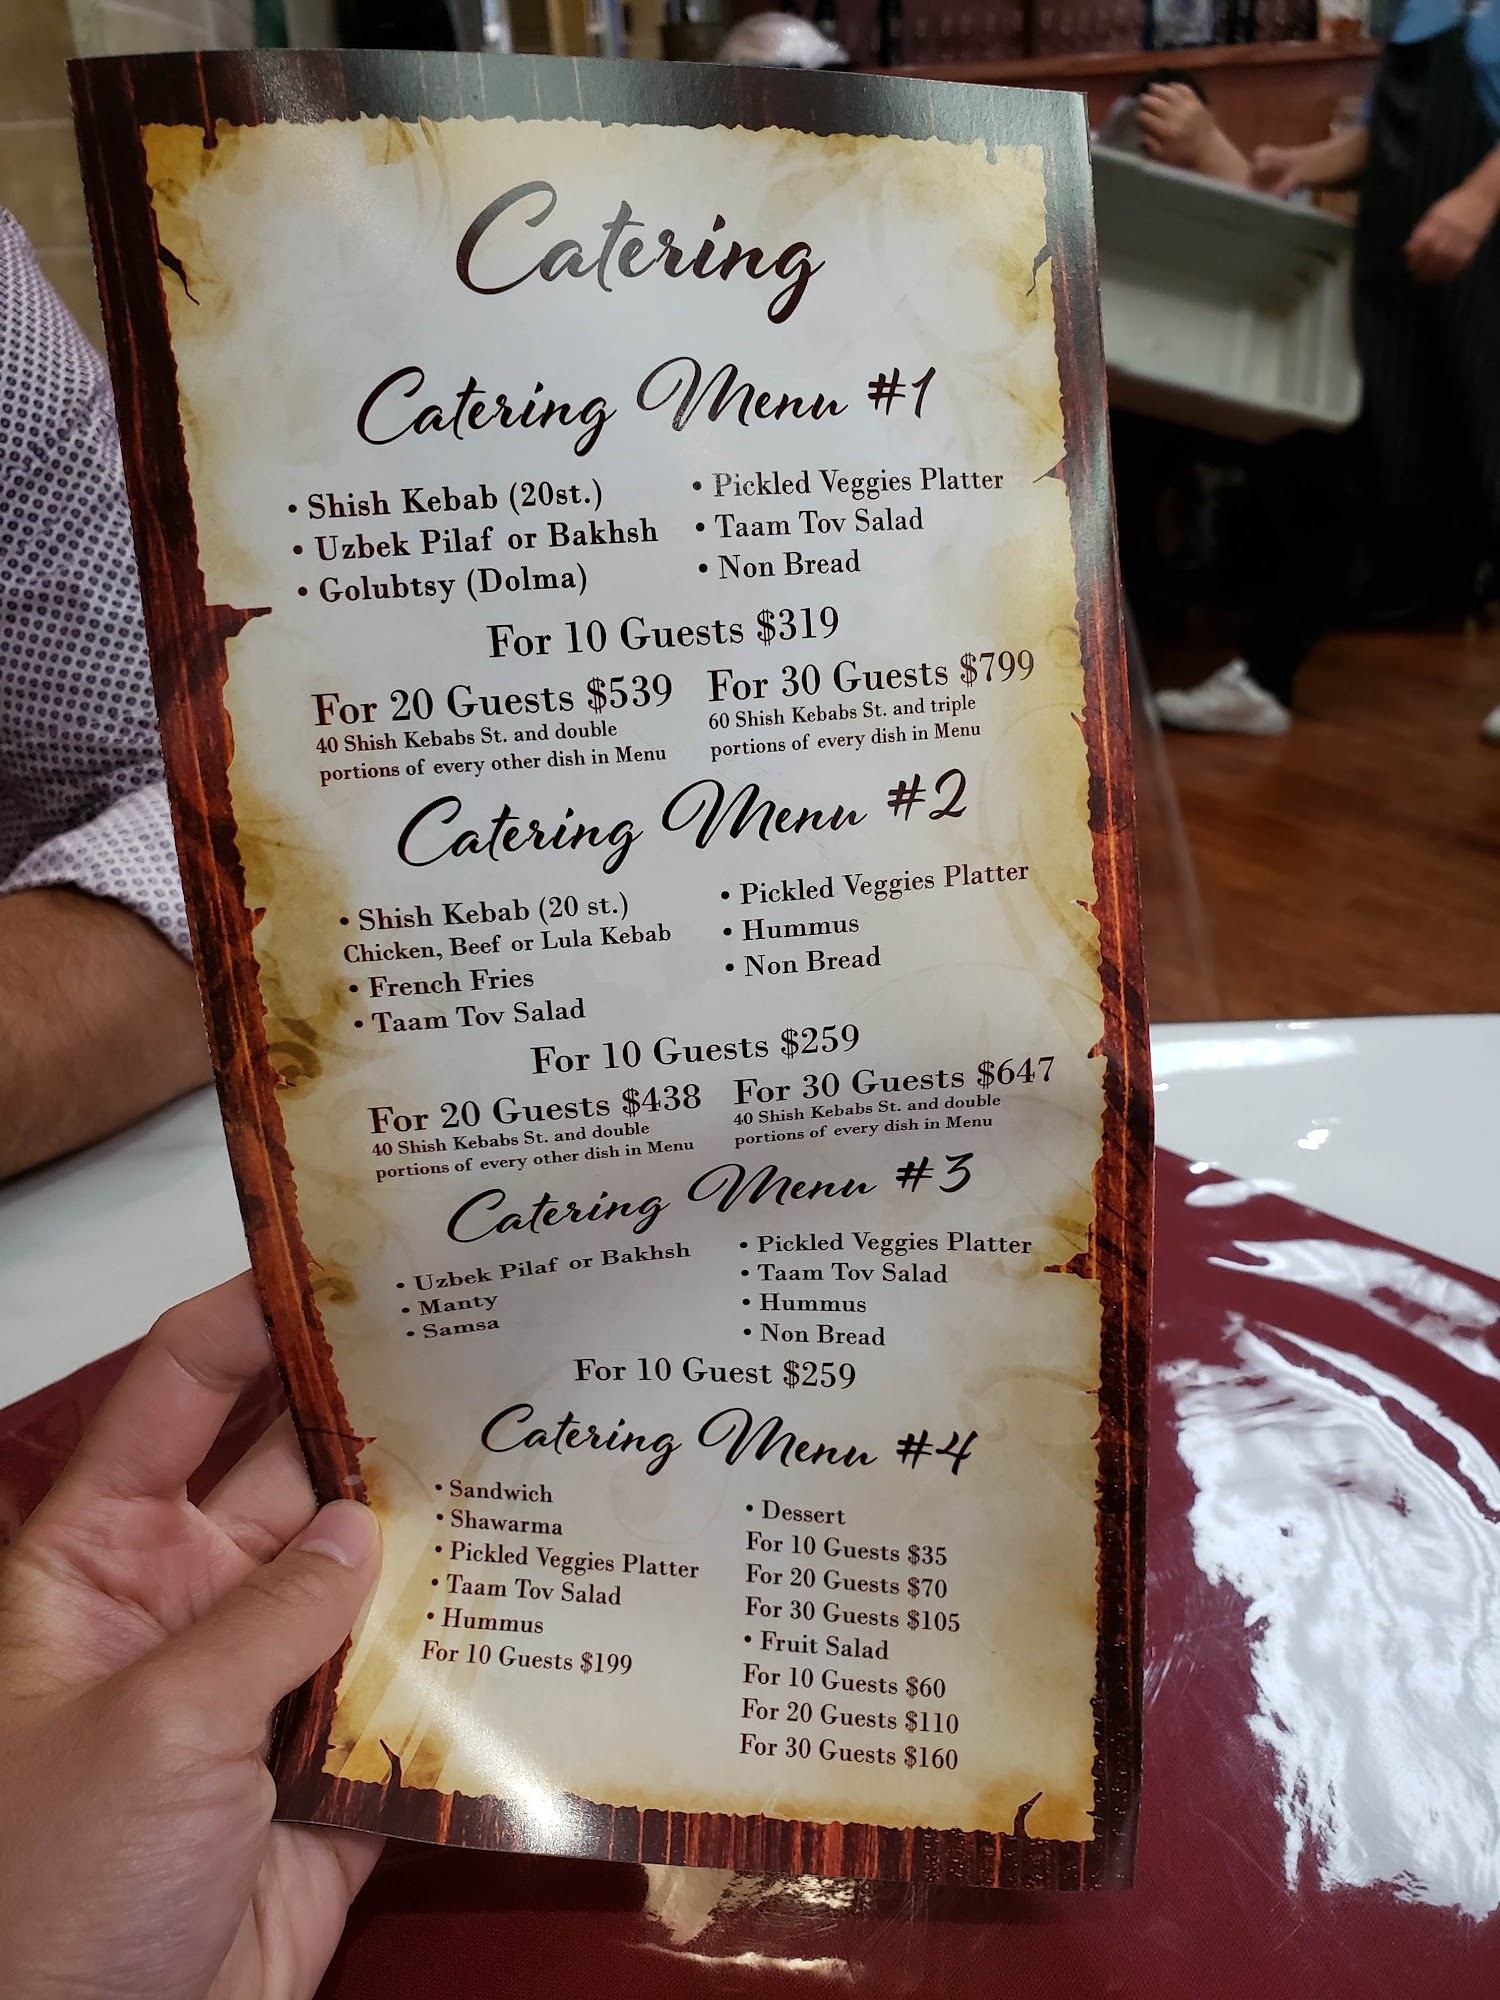 Catering
Catering Menu #1
• Shish Kebab (20st.)
• Uzbek Pilaf or Bakhsh
• Golubtsy (Dolma)
• Pickled Veggies Platter
• Taam Tov Salad
• Non Bread
For 10 Guests $319
For 20 Guests $539
40 Shish Kebabs St. and double
portions of every other dish in Menu
For 30 Guests $799
60 Shish Kebabs St. and triple
portions of every dish in Menu
Catering Menu #2
• Shish Kebab (20 st.)
Chicken, Beef or Lula Kebab
• French Fries
• Taam Tov Salad
• Pickled Veggies Platter
• Hummus
• Non Bread
For 10 Guests $259
For 20 Guests $438
40 Shish Kebabs St. and double
portions of every other dish in Menu
For 30 Guests $647
40 Shish Kebabs St. and double
portions of every dish in Menu
Catering Menu #3
• Uzbek Pilaf or Bakhsh
• Manty
• Samsa
• Pickled Veggies Platter
• Taam Tov Salad
• Hummus
• Non Bread
For 10 Guest $259
Catering Menu #4
• Sandwich
• Shawarma
• Pickled Veggies Platter
• Taam Tov Salad
• Hummus
For 10 Guests $199
• Dessert
For 10 Guests $35
For 20 Guests $70
For 30 Guests $105
• Fruit Salad
For 10 Guests $60
For 20 Guests $110
For 30 Guests $160